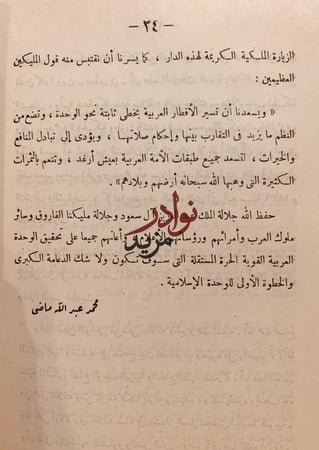 — ٣٤ —
الزيارة الملكية الكريمة لهذه الدار ، كما يسرنا أن نقتبس منه قول المليكين
العظيمين :
« ويسعدنا أن تسير الأقطار العربية بخطى ثابتة نحو الوحدة ، وتضع من
النظم ما يزيد فى التقارب بينها وإحكام صلاتها ، ويؤدى إلى تبادل المنافع
والخيرات ، لتسعد جميع طبقات الأمة العربية بعيش أرغد ، وتنعم بالثمرات
الكثيرة التى وهبها الله سبحانه أرضهم وبلادهم » .
حفظ الله جلالة الملك آل سعود وجلالة مليكنا الفاروق وسائر
ملوك العرب وأمرائهم ورؤسائهم وأعانهم جميعا على تحقيق الوحدة
العربية القوية الحرة المستقلة التى سوف تكون ولا شك الدعامة الكبرى
والخطوة الأولى للوحدة الإسلامية .
محمد عبد الله ماضى
نوادر
مزيد